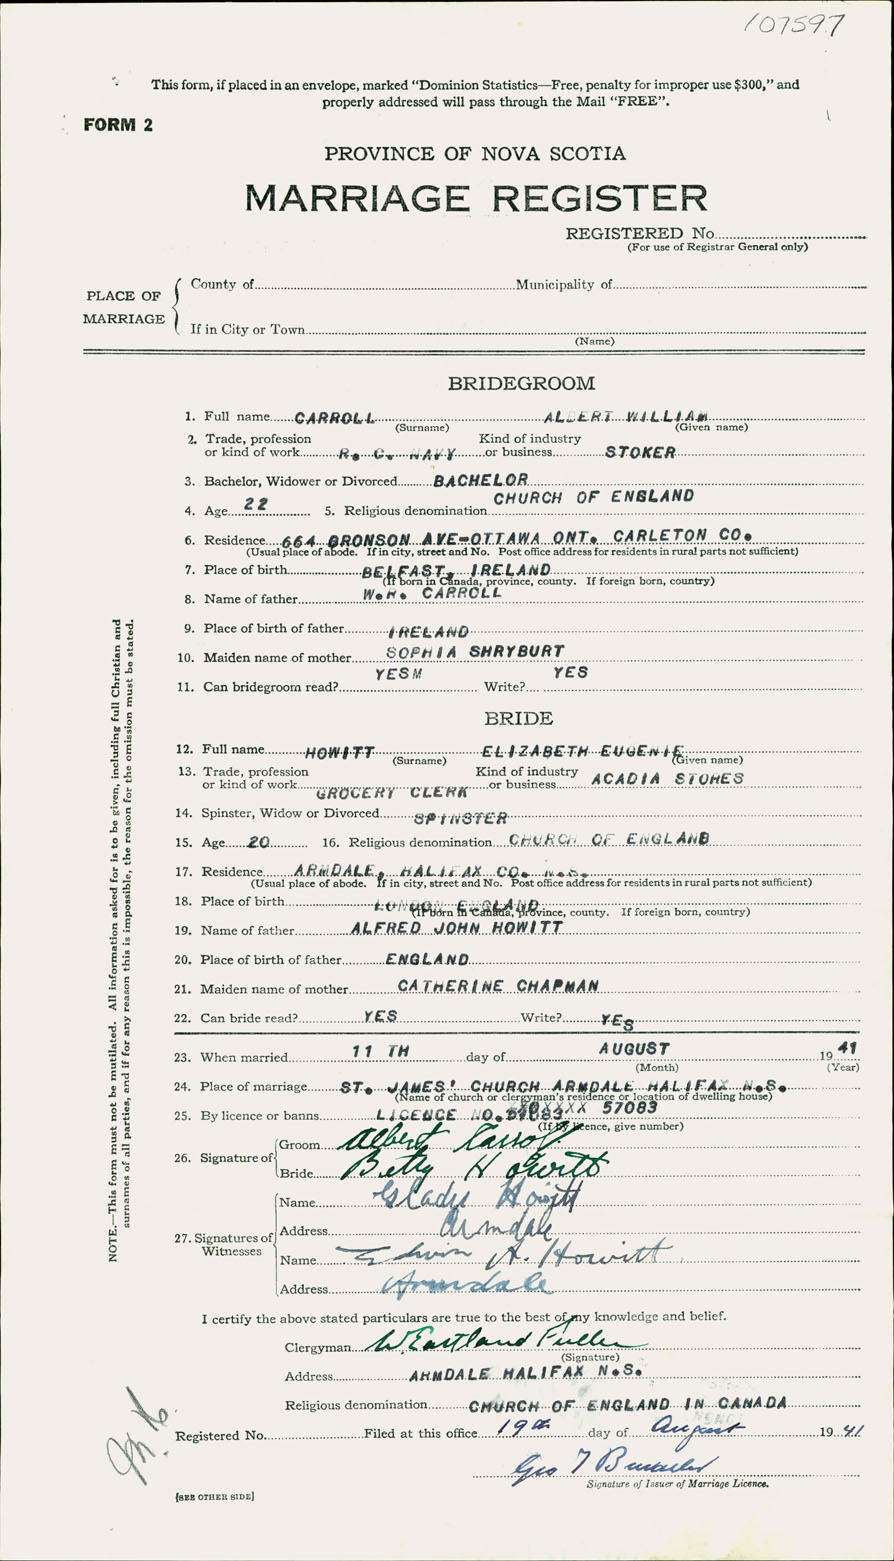 107597
This form, if placed in an envelope, marked "Dominion Statistics—Free, penalty for improper use $300," and
properly addressed will pass through the Mail "FREE".
FORM 2
PROVINCE OF NOVA SCOTIA
MARRIAGE REGISTER
REGISTERED No.
(For use of Registrar General only)
PLACE OF MARRIAGE
County of Municipality of
If in City or Town
(Name)
BRIDEGROOM
1. Full name CARROLL ALBERT WILLIAM
(Surname) (Given name)
2. Trade, profession Kind of industry
or kind of work R. C. NAVY or business STOKER
3. Bachelor, Widower or Divorced BACHELOR
4. Age 22 5. Religious denomination CHURCH OF ENGLAND
6. Residence 664 BRONSON AVE-OTTAWA ONT. CARLETON CO.
(Usual place of abode. If in city, street and No. Post office address for residents in rural parts not sufficient)
7. Place of birth BELFAST, IRELAND
(If born in Canada, province, county. If foreign born, country)
8. Name of father W.H. CARROLL
9. Place of birth of father IRELAND
10. Maiden name of mother SOPHIA SHRYBURT
11. Can bridegroom read? YESM Write? YES
BRIDE
12. Full name HOWITT ELIZABETH EUGENIE
(Surname) (Given name)
13. Trade, profession Kind of industry
or kind of work GROCERY CLERK or business ACADIA STORES
14. Spinster, Widow or Divorced SPINSTER
15. Age 20 16. Religious denomination CHURCH OF ENGLAND
17. Residence ARMDALE, HALIFAX CO. N.S.
(Usual place of abode. If in city, street and No. Post office address for residents in rural parts not sufficient)
18. Place of birth LONDON ENGLAND
(If born in Canada, province, county. If foreign born, country)
19. Name of father ALFRED JOHN HOWITT
20. Place of birth of father ENGLAND
21. Maiden name of mother CATHERINE CHAPMAN
22. Can bride read? YES Write? YES
23. When married 11 TH day of AUGUST 19 41
(Month) (Year)
24. Place of marriage ST. JAMES' CHURCH ARMDALE HALIFAX N.S.
(Name of church or clergyman's residence or location of dwelling house)
25. By licence or banns LICENCE NO. 57083
(If by licence, give number)
26. Signature of
Groom Albert Carroll
Bride Betty Howitt
27. Signatures of Witnesses
Name Gladys Howitt
Address Armdale
Name Edwin A. Howitt
Address Armdale
I certify the above stated particulars are true to the best of my knowledge and belief.
Clergyman W. Eastland Fuller
(Signature)
Address ARMDALE HALIFAX N.S.
Religious denomination CHURCH OF ENGLAND IN CANADA
Registered No. Filed at this office 19th day of August 19 41
Geo T
Signature of Issuer of Marriage Licence.
[SEE OTHER SIDE]
NOTE.—This form must not be mutilated. All information asked for is to be given, including full Christian and
surnames of all parties, and if for any reason this is impossible, the reason for the omission must be stated.